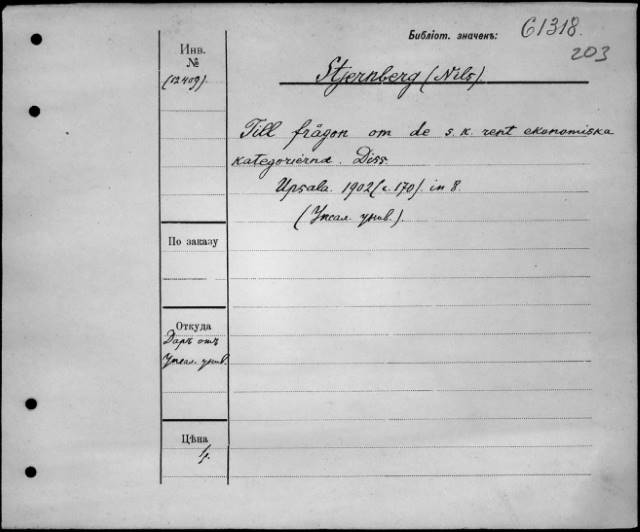 Библіот. значекъ: 61318.
203
Инв.
№
(12409)
Stjernberg (Nils)
Till frågon om de s. k. rent ekonomiska
kategorierna. Diss.
Upsala. 1902 (с. 170). in 8.
(Упсал. унив.).
По заказу
Откуда
Даръ отъ
Упсал. унив.
Цѣна